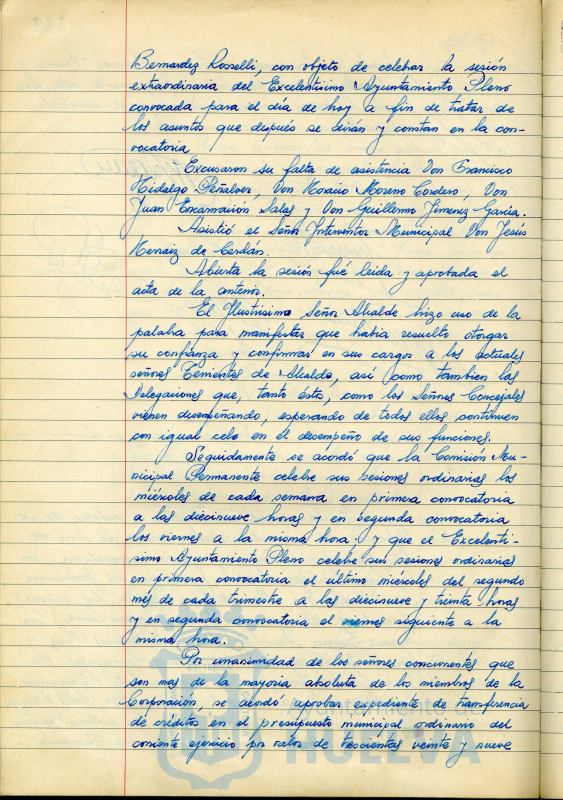 Bernardez Rosselli, con objeto de celebrar la sesión
extraordinaria del Excelentísimo Ayuntamiento Pleno
convocada para el día de hoy a fin de tratar de
los asuntos que después se dirán y constan en la con-
vocatoria
Excusaron su falta de asistencia Don Francisco
Hidalgo Peñalver, Don Horacio Moreno Cordero, Don
Juan Encarnación Salas y Don Guillermo Jimenez García.
Asistió el Señor Interventor Municipal Don Jesús
Herraiz de Cerdán.
Abierta la sesión fué leida y aprobada el
acta de la anterior.
El Ilustrísimo Señor Alcalde hizo uso de la
palabra para manifestar que habia resuelto otorgar
su confianza y confirmar en sus cargos a los actuales
señores Tenientes de Alcalde, así como tambien las
Delegaciones que, tanto éstos, como los Señores Concejales
vienen desempeñando, esperando de todos ellos continuen
con igual celo en el desempeño de sus funciones.
Seguidamente se acordó que la Comisión Mu-
nicipal Permanente celebre sus sesiones ordinarias los
miércoles de cada semana en primera convocatoria
a las diecinueve horas y en segunda convocatoria
los viernes a la misma hora; y que el Excelentí-
simo Ayuntamiento Pleno celebre sus sesiones ordinarias
en primera convocatoria el último miércoles del segundo
més de cada trimestre a las diecinueve y treinta horas
y en segunda convocatoria el viernes siguiente a la
misma hora.
Por unanimidad de los señores concurrentes que
son mas de la mayoria absoluta de los miembros de la
Corporación, se acordó aprobar expediente de transferencia
de créditos en el presupuesto municipal ordinario del
corriente ejercicio por valor de trescientas veinte y nueve
Ayuntamiento de
HUELVA